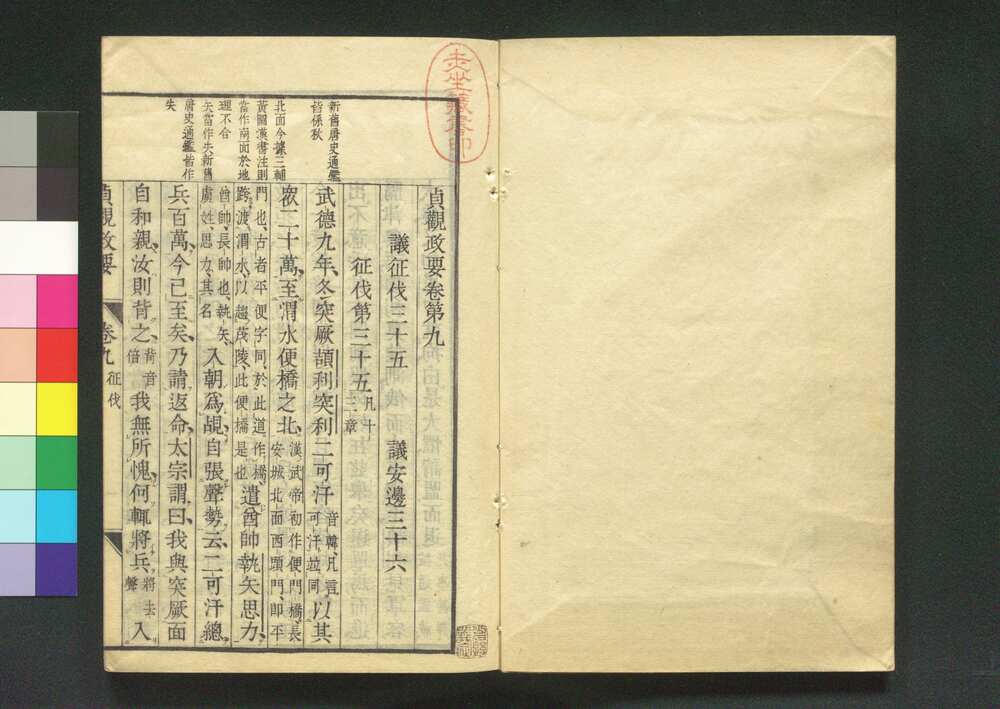 新舊唐史通鑑
皆係秋
北面今據三輔
黃圖漢書注則
當作南面於地
理不合
矢當作失新舊
唐史通鑑皆作
失
貞觀政要卷第九
議征伐三十五 議安邊三十六
征伐第三十五 凡十 章
武德九年、冬、突厥頡利突利二可汗 音韓、凡言可汗、竝同 以其
衆二十萬、至渭水便橋之北、 漢武帝初作便門橋、長安城北面西頭門、即平
門也、古者平便字同、於此道作橋、跨渡渭水、以趨茂陵、此便橋是也 遣酋帥執矢思力、
酋帥、長帥也、執矢、虜姓、思力、其名 入朝爲覘、自張聲勢、云、二可汗總
兵百萬、今已至矣、乃請返命、太宗謂曰、我與突厥面
自和親、汝則背之、 背音倍 我無所愧、何輒將兵 將去聲 入
貞觀政要 卷九 征伐